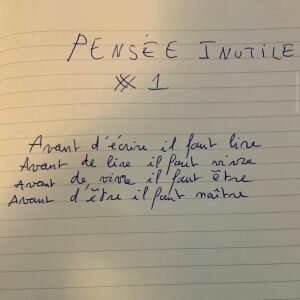 PENSÉE INUTILE
# 1
Avant d'écrire il faut lire
Avant de lire il faut vivre
Avant de vivre il faut être
Avant d'être il faut naître